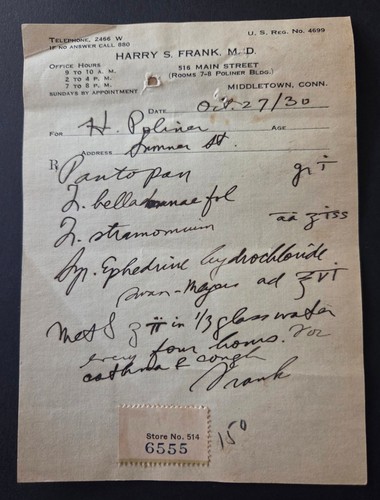 TELEPHONE, 2466 W
IF NO ANSWER CALL 880
U. S. REG. NO. 4699
HARRY S. FRANK, M. D.
OFFICE HOURS
9 TO 10 A. M.
2 TO 4 P. M.
7 TO 8 P. M.
SUNDAYS BY APPOINTMENT
516 MAIN STREET
(ROOMS 7-8 POLINER BLDG.)
MIDDLETOWN, CONN.
DATE Oct. 27/30
FOR H. Poliner AGE
ADDRESS Sumner St.
℞ Pantopan gr i
T. belladonnae fol
T. stramonium aa ʒ iss
Syr. Ephedrine hydrochloride
Swan-Myers ad ℥ vi
M et S ʒ ii in 1/3 glass water
every four hours. For
asthma & cough
Frank
Store No. 514
6555
150